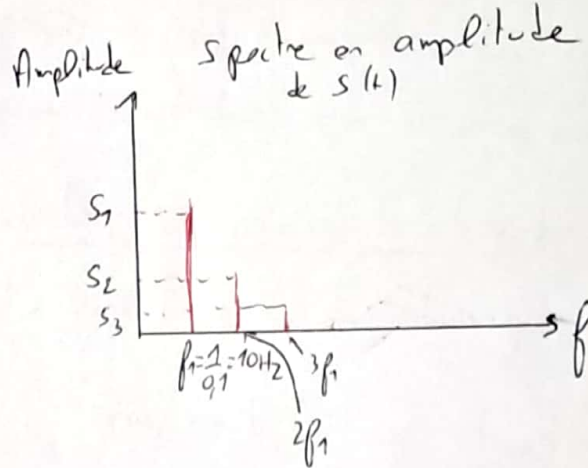 Amplitude
Spectre en amplitude
de s(t)
S1
S2
S3
f1=1/0,1=10Hz
3f1
2f1
f